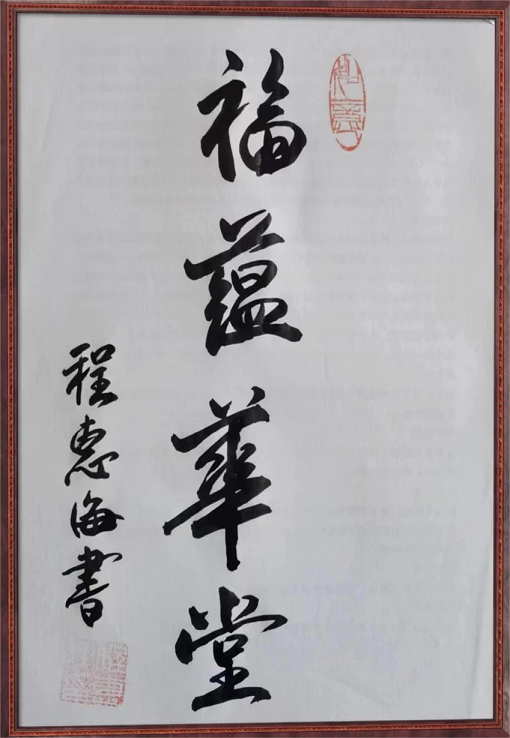 如意
福蕴華堂
程惠海書